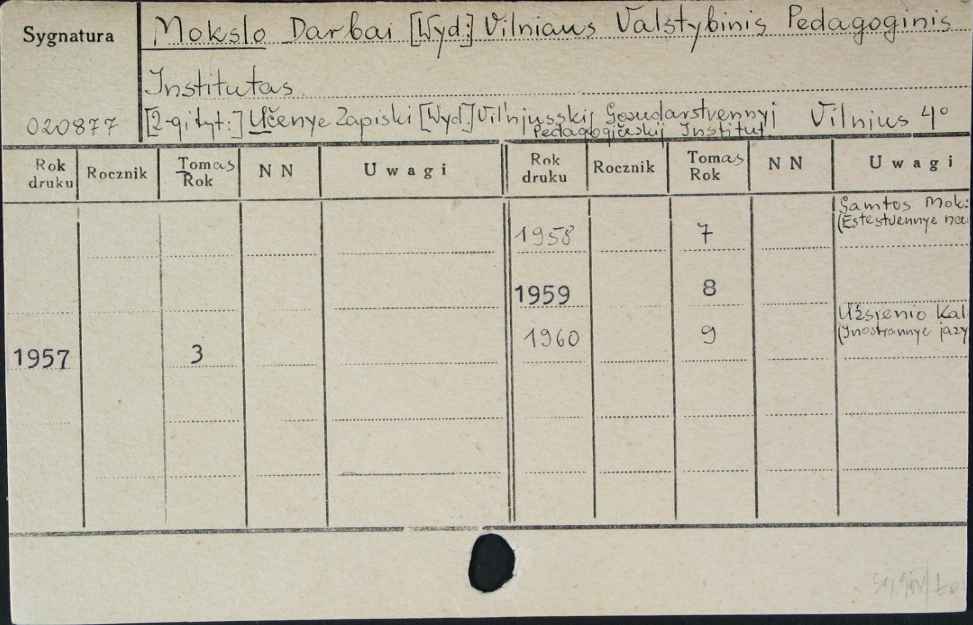 Sygnatura
Mokslo Darbai [Wyd:] Vilniaus Valstybinis Pedagoginis
Institutas
020877
[2-gi tyt:] Učenye Zapiski [Wyd] Vil'njusskij Gosudarstvennyj Vilnius 4°
Pedagogičeskij Institut.
Rok druku Rocznik Tomas Rok NN Uwagi Rok druku Rocznik Tomas Rok NN Uwagi
Gamtos Mok:
(Estestvennye
1958 7
1959 8
Užsienio Kal
(Inostrannye jazy
1960 9
1957 3